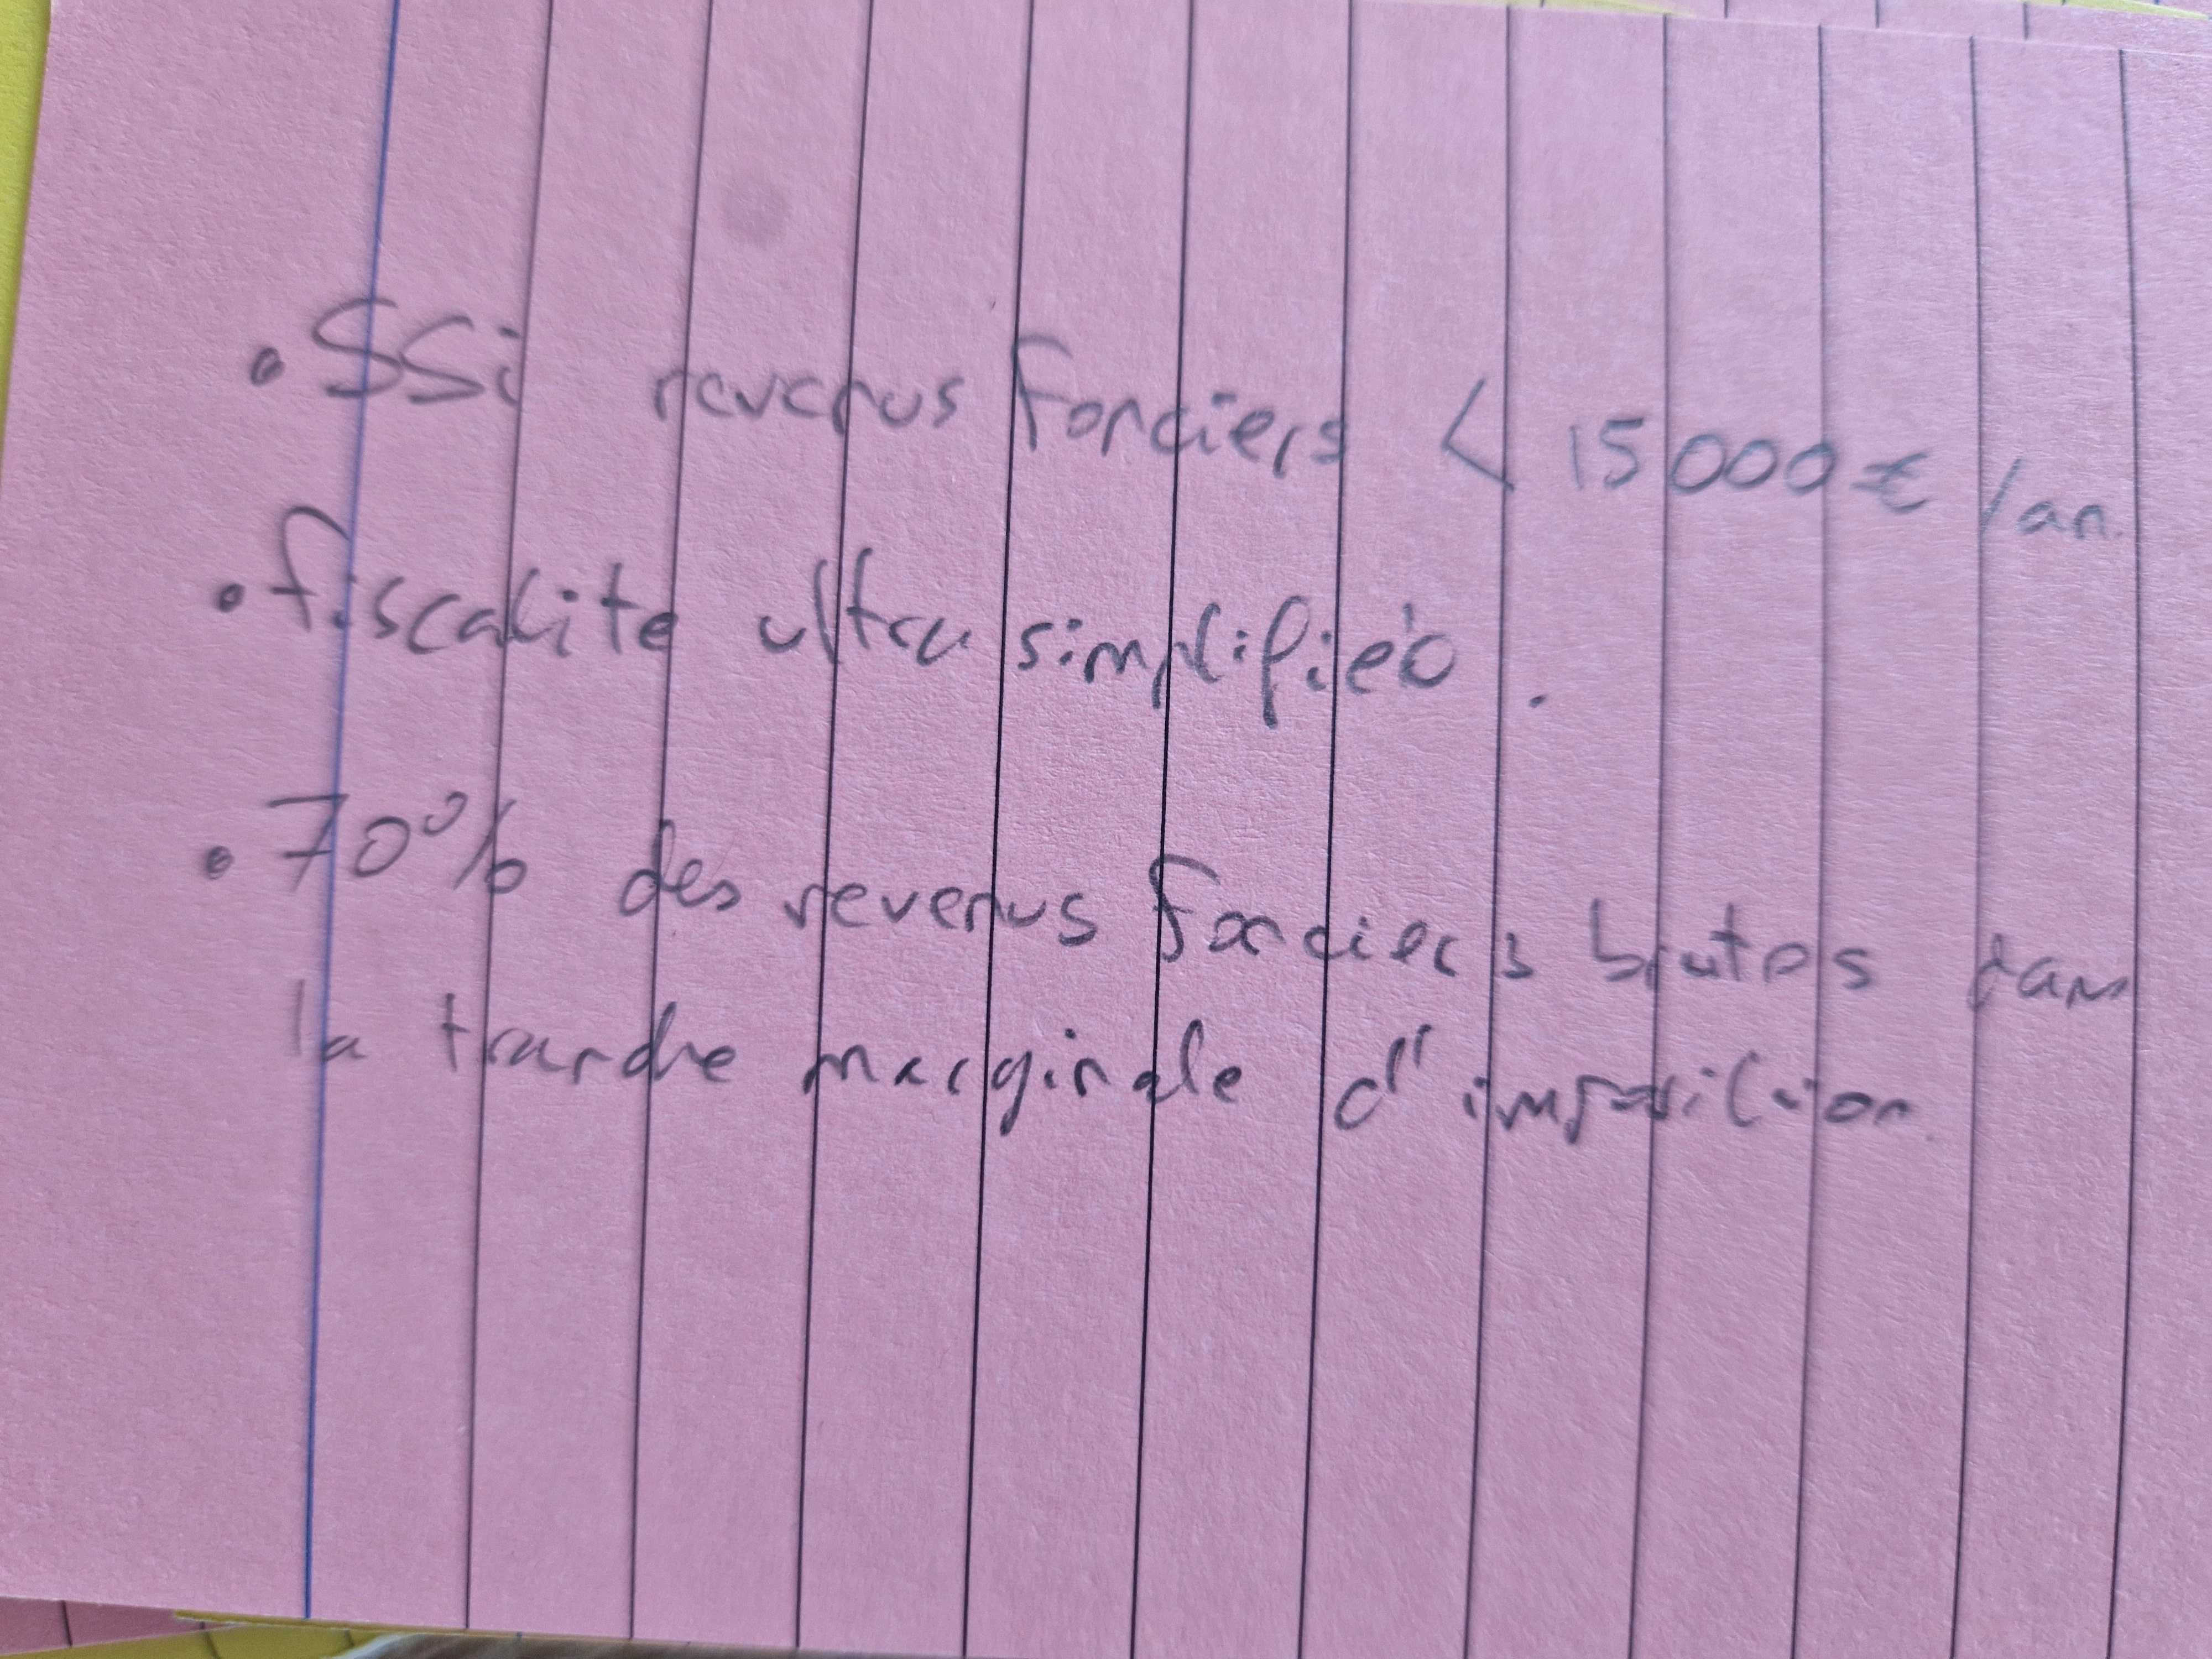 • SSi revenus fonciers < 15 000 € / an.
• fiscalite ultra simplifiéé.
• 70% des revenus fonciers brutes dans
la tranche marginale d'imposition